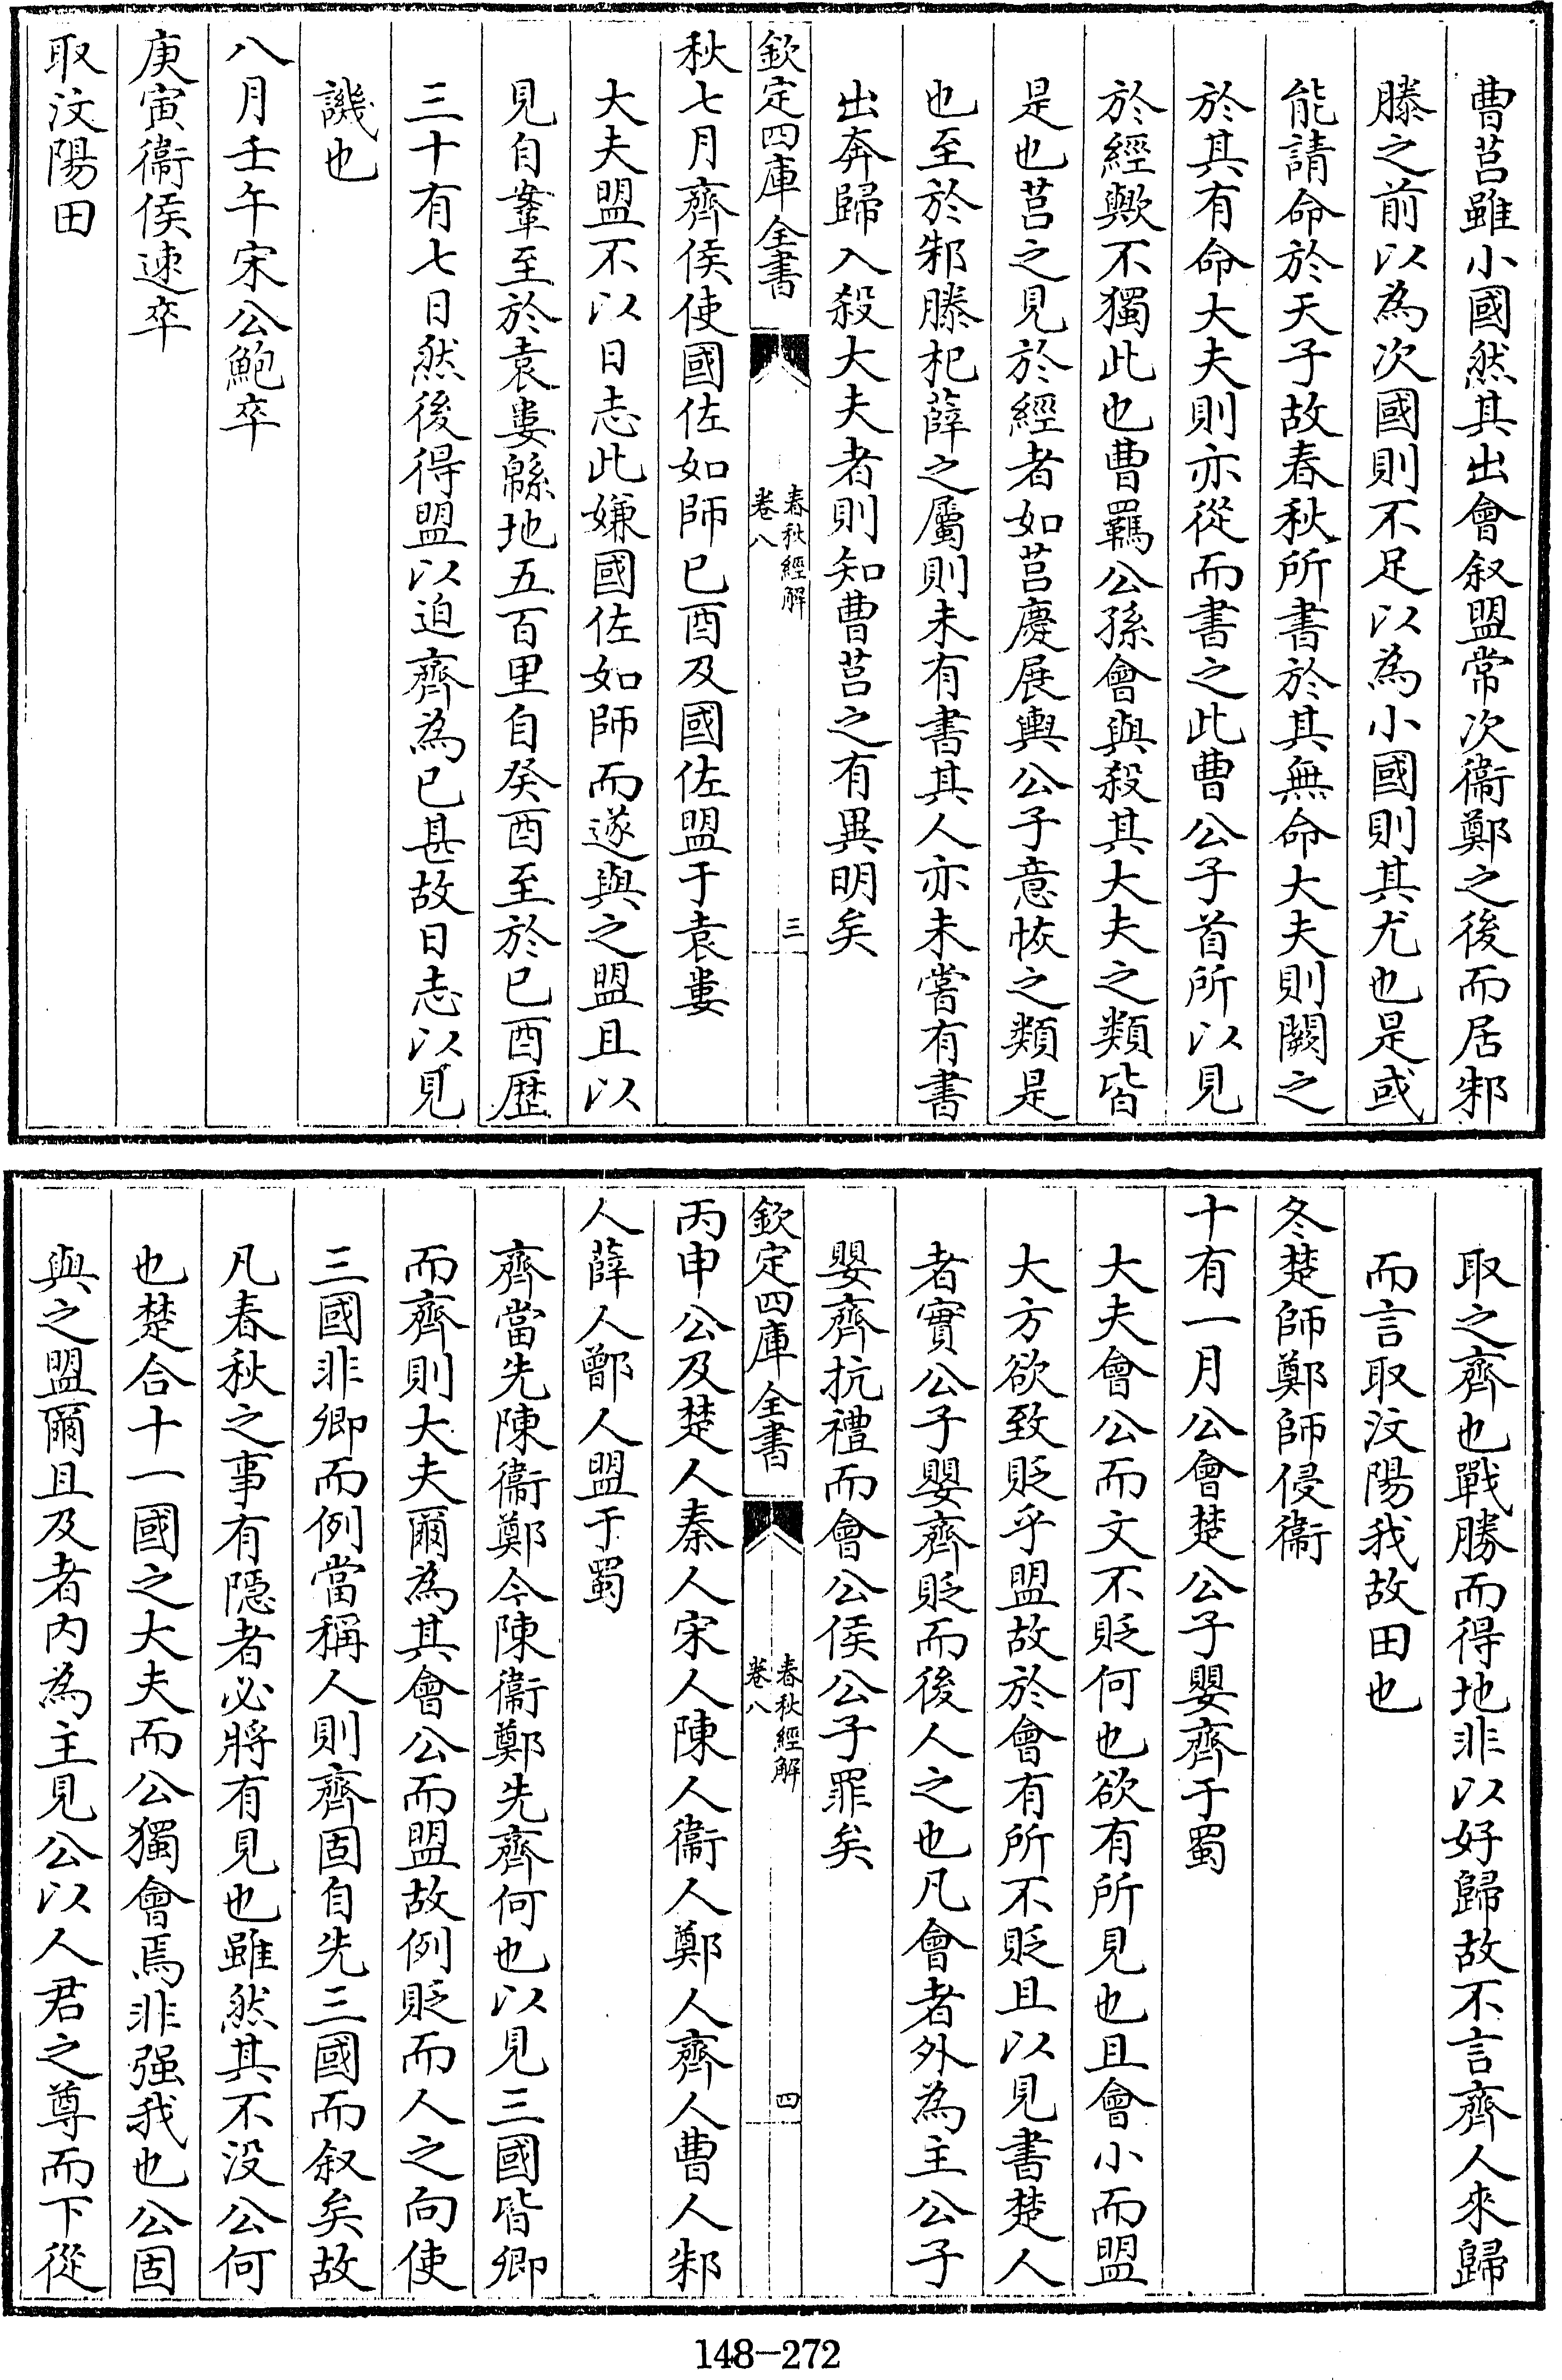 曹莒雖小國然其出會叙盟常次衞鄭之後而居邾
滕之前以為次國則不足以為小國則其尤也是或
能請命於天子故春秋所書於其無命大夫則闕之
於其有命大夫則亦從而書之此曹公子首所以見
於經歟不獨此也曹羈公孫會與殺其大夫之類皆
是也莒之見於經者如莒慶展輿公子意恢之類是
也至於邾滕杞薛之屬則未有書其人亦未嘗有書
出奔歸入殺大夫者則知曹莒之有異明矣
欽定四庫全書
春秋經解
卷八
三
秋七月齊侯使國佐如師已酉及國佐盟于袁婁
大夫盟不以日志此嫌國佐如師而遂與之盟且以
見自鞌至於袁婁緜地五百里自癸酉至於已酉歴
三十有七日然後得盟以迫齊為已甚故日志以見
譏也
八月壬午宋公鮑卒
庚寅衞侯速卒
取汶陽田
取之齊也戰勝而得地非以好歸故不言齊人來歸
而言取汶陽我故田也
冬楚師鄭師侵衞
十有一月公會楚公子嬰齊于蜀
大夫會公而文不貶何也欲有所見也且會小而盟
大方欲致貶乎盟故於會有所不貶且以見書楚人
者實公子嬰齊貶而後人之也凡會者外為主公子
嬰齊抗禮而會公侯公子罪矣
欽定四庫全書
春秋經解
卷八
四
丙申公及楚人秦人宋人陳人衞人鄭人齊人曹人邾
人薛人鄫人盟于蜀
齊當先陳衞鄭今陳衞鄭先齊何也以見三國皆卿
而齊則大夫爾為其會公而盟故例貶而人之向使
三國非卿而例當稱人則齊固自先三國而叙矣故
凡春秋之事有隱者必將有見也雖然其不没公何
也楚合十一國之大夫而公獨會焉非强我也公固
與之盟爾且及者内為主見公以人君之尊而下從
148-272